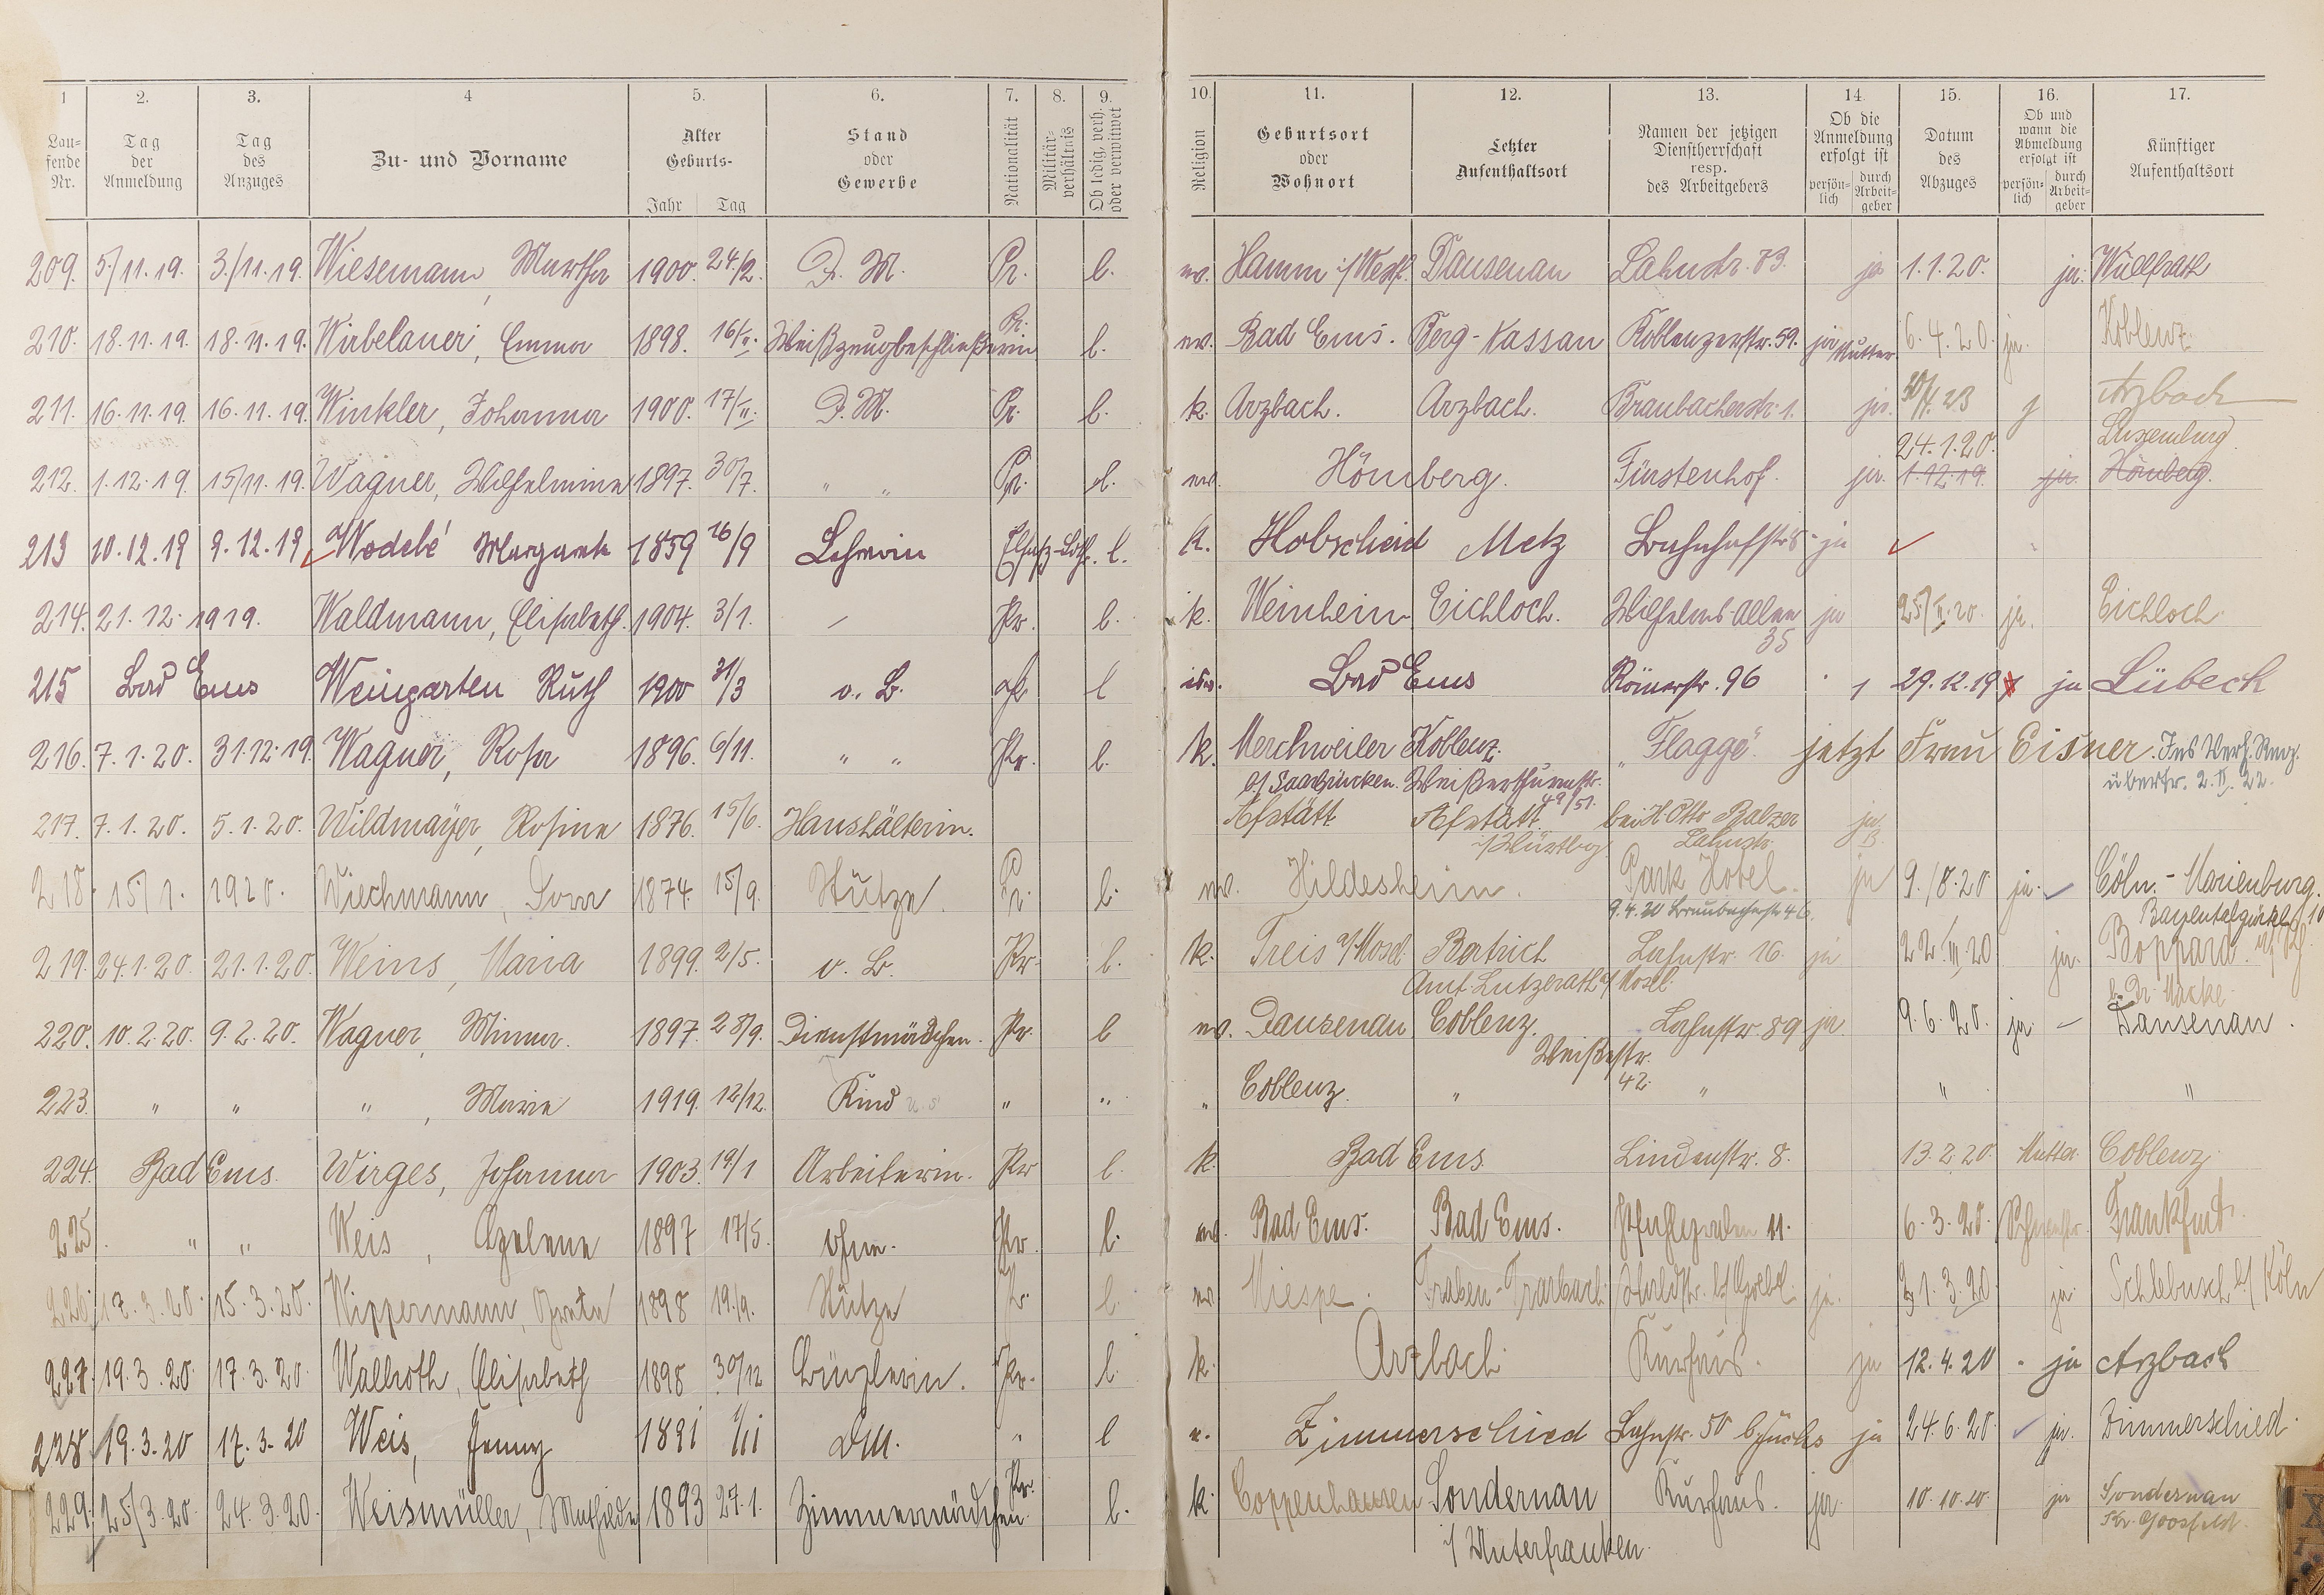 1 2. 3. 4 5. 6. 7. 8. 9. 10. 11. 12. 13. 14. 15. 16. 17.
Laufende Nr. Tag der Anmeldung Tag des Anzuges Zu- und Vorname Alter Geburts- Jahr Tag Stand oder Gewerbe Nationalität Militärverhältnis Ob ledig, verh. oder verwitwet Religion Geburtsort oder Wohnort Letzter Aufenthaltsort Namen der jetzigen Dienstherrschaft resp. des Arbeitgebers Ob die Anmeldung erfolgt ist persönlich durch Arbeitgeber Datum des Abzuges Ob und wann die Abmeldung erfolgt ist persönlich durch Arbeitgeber Künftiger Aufenthaltsort
209. 5./11.19. 3./11.19. Wiesemann, Martha 1900. 24/2. D. M. Pr. l. ev. Hamm i/Westf. Dausenau Lahnstr. 73. ja 1.1.20. ja. Wülfrath
210. 18.11.19. 18.11.19. Wirbelauer, Emma 1898. 16/II. Weißzeugbeschließerin Pr. l. ev. Bad Ems. Berg-Nassau Koblenzerstr. 59. ja Mutter 6.4.20. ja. Koblenz
211. 16.11.19. 16.11.19. Winkler, Johanna 1900. 17/II. D. M. Pr. l. k. Arzbach. Arzbach. Braubacherstr. 1. ja. j Arzbach
24.1.20. Luxemburg
212. 1.12.19. 15/11.19. Wagner, Wilhelmine 1897. 30/7. " " Pr. l. ev. Hömberg. Fürstenhof. ja. 1.12.19. ja Hömberg.
213 10.12.19 9.12.19 Wodebé Margarete 1859 16/9 Lehrerin Elsaß-Lothr. l. k. Hobscheid Metz Bahnhofstr. 8 ja
214. 21.12.1919. Waldmann, Elisabeth. 1904. 3/1. Pr. l. k. Weinheim Eichloch. Wilhelms-Allee 35 ja 25/II.20. ja. Eichloch
215 Bad Ems Weingarten Ruth 1900 31/3 o. B. Pr. l isr. Bad Ems Römerstr. 96 29.12.19 ja Lübeck
216. 7.1.20. 31.12.19. Wagner, Rosa 1896. 6/11. " " Pr. l. k. Merchweiler Koblenz. "Flagge". jetzt Frau Eisner. Ins Verh. Reg.
b/ Saarbrücken. Weißerthurmstr. 49/51. übertr. 2.II.22.
217. 7.1.20. 5.1.20. Wildmayer, Rosine 1876. 15/6. Haushälterin. Afstätt Afstätt i/Württbg. bei H. Otto Balzer Lahnstr. ja
218. 15/1. 1920. Wiechmann, Dora 1874. 15/9. Stütze. Pr. l. ev. Hildesheim. Park Hotel. ja 9./8.20 ja. Cöln-Marienburg.
9.4.20 Braubacherstr. 46. Bayentalgürtel 10
219. 24.1.20. 21.1.20. Weins, Maria 1899. 2/5. o. B. Pr. l. k. Treis a/Mosel Bertrich Lahnstr. 16. ja 22.III.20 ja. Boppard
Amt Lutzerath a/Mosel.
220. 10.2.20. 9.2.20. Wagner, Minna. 1897. 28/9. Dienstmädchen. Pr. l ev. Dausenau Coblenz. Lahnstr. 89 ja. 9.6.20. ja – Dausenau.
Weißestr. 42.
223. " " ", Marie 1919. 12/12. Kind " " " Coblenz. " " " "
224. Bad Ems. Wirges, Johanna 1903. 19/1 Arbeiterin. Pr l. k. Bad Ems. Lindenstr. 8. 13.2.20. Mutter. Coblenz
225. " " Weis, 1897 17/5. ohne. Pr. l. ev. Bad Ems. Bad Ems. 11. 6.3.20. Frankfurt.
226. 17.3.20. 15.3.20. Wippermann, Grete 1898 19./9. Stütze Pr. l. ev. Traben-Trarbach ja. 31.3.20 ja. Schlebusch b/ Köln
227. 19.3.20. 17.3.20. Wallroth, Elisabeth 1898 30/12 Büglerin. Pr. l. k. Arzbach Kurhaus. ja 12.4.20 ja Arzbach
228. 19.3.20 17.3.20 Weis, Jenny 1891 1/11 DM. " l e. Zimmerschied Lahnstr. 50 b. Fuchs ja 24.6.20. ja. Zimmerschied.
229. 25./3.20. 24.3.20. Weismüller, Mathilde 1893 27.1. Zimmermädchen. Pr. l. k. Coppenhausen Sondernau Kurhaus. ja. 10.10.20. ja Sondernau
i/ Unterfranken.